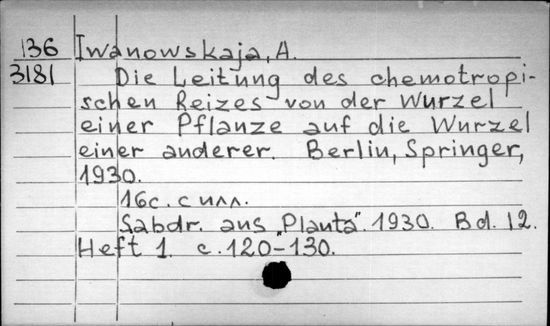 136 Iwanowskaja, A.
3181 Die Leitung des chemotropi-
schen Reizes von der Wurzel
einer Pflanze auf die Wurzel
einer anderer. Berlin, Springer,
1930.
16c. с илл.
Sabdr. aus „Planta". 1930. Bd. 12.
Heft 1. c. 120-130.